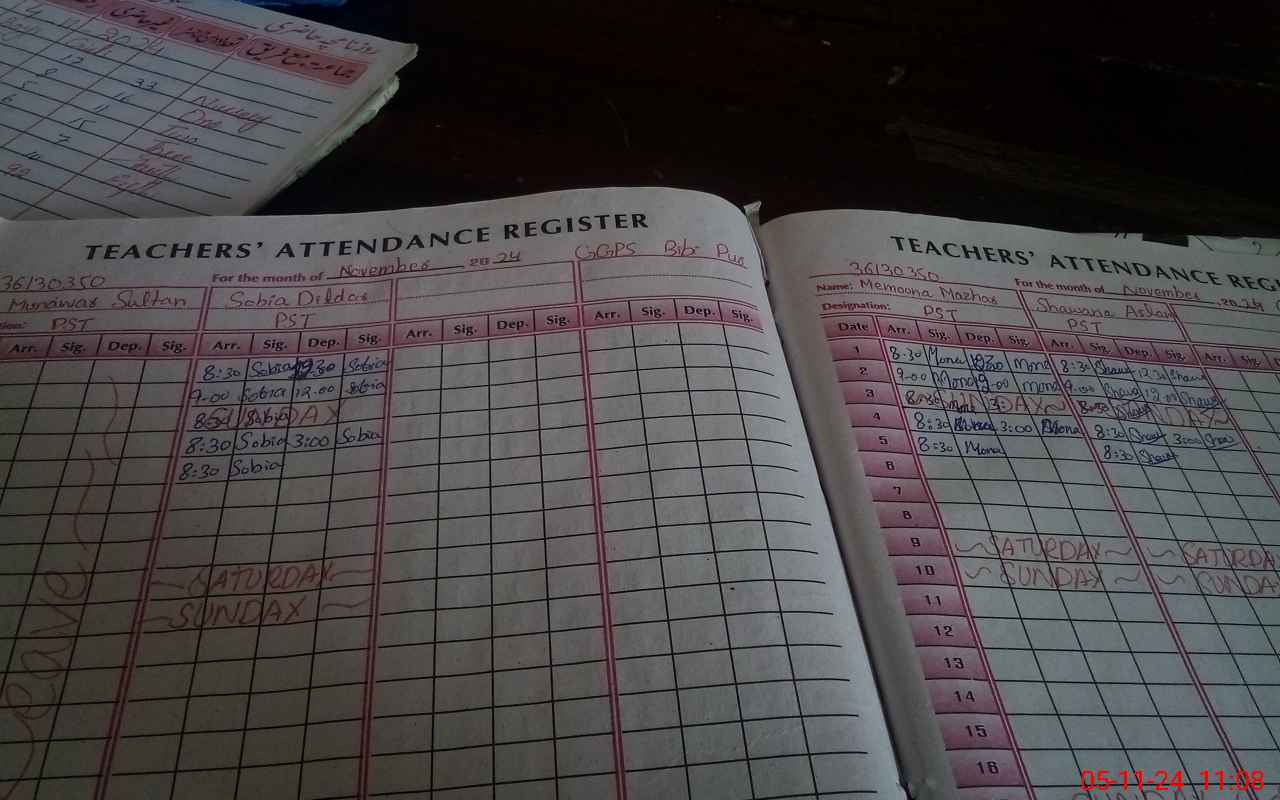 روزنامچہ حاضری
2024
12
33
Nursery
8
16
One
5
11
Two
6
15
Three
7
99
TEACHERS' ATTENDANCE REGISTER
36130350 For the month of November 2024 GGPS
Munawar Sultan Sobia Dildar
tion: PST PST
Arr. Sig. Dep. Sig. Arr. Sig. Dep. Sig. Arr. Sig. Dep. Sig. Arr. Sig. Dep. Sig.
8:30 Sobia 12:30 Sobia
9.00 Sobia 12.00 Sobia
Sobia
8:30 Sobia 3:00 Sobia
8:30 Sobia
~ SATURDAY ~
~ SUNDAY ~
Leave
TEACHERS' ATTENDANCE REGI
36130350 For the month of November 2024
Name: Memoona Mazhar Shawana Aslam
Designation: PST PST
Date Arr. Sig. Dep. Sig. Arr. Sig. Dep. Sig. Arr. Sig.
1 8:30 Mona 12:30 Mona 8:30 Shawa 12:30 Shawa
2 9.00 Mona 12.00 Mona 9.00 Shawa 12.00 Shawa
3 SUNDAY ~
4 8:30 Mona 3:00 Mona 8:30 Shawa 3:00 Shawa
5 8:30 Mona 8:30 Shawa
6
7
8
9 ~ SATURDAY ~ ~ SATURDA
10 ~ SUNDAY ~ ~ SUNDA
11
12
13
14
15
16
05-11-24 11:08